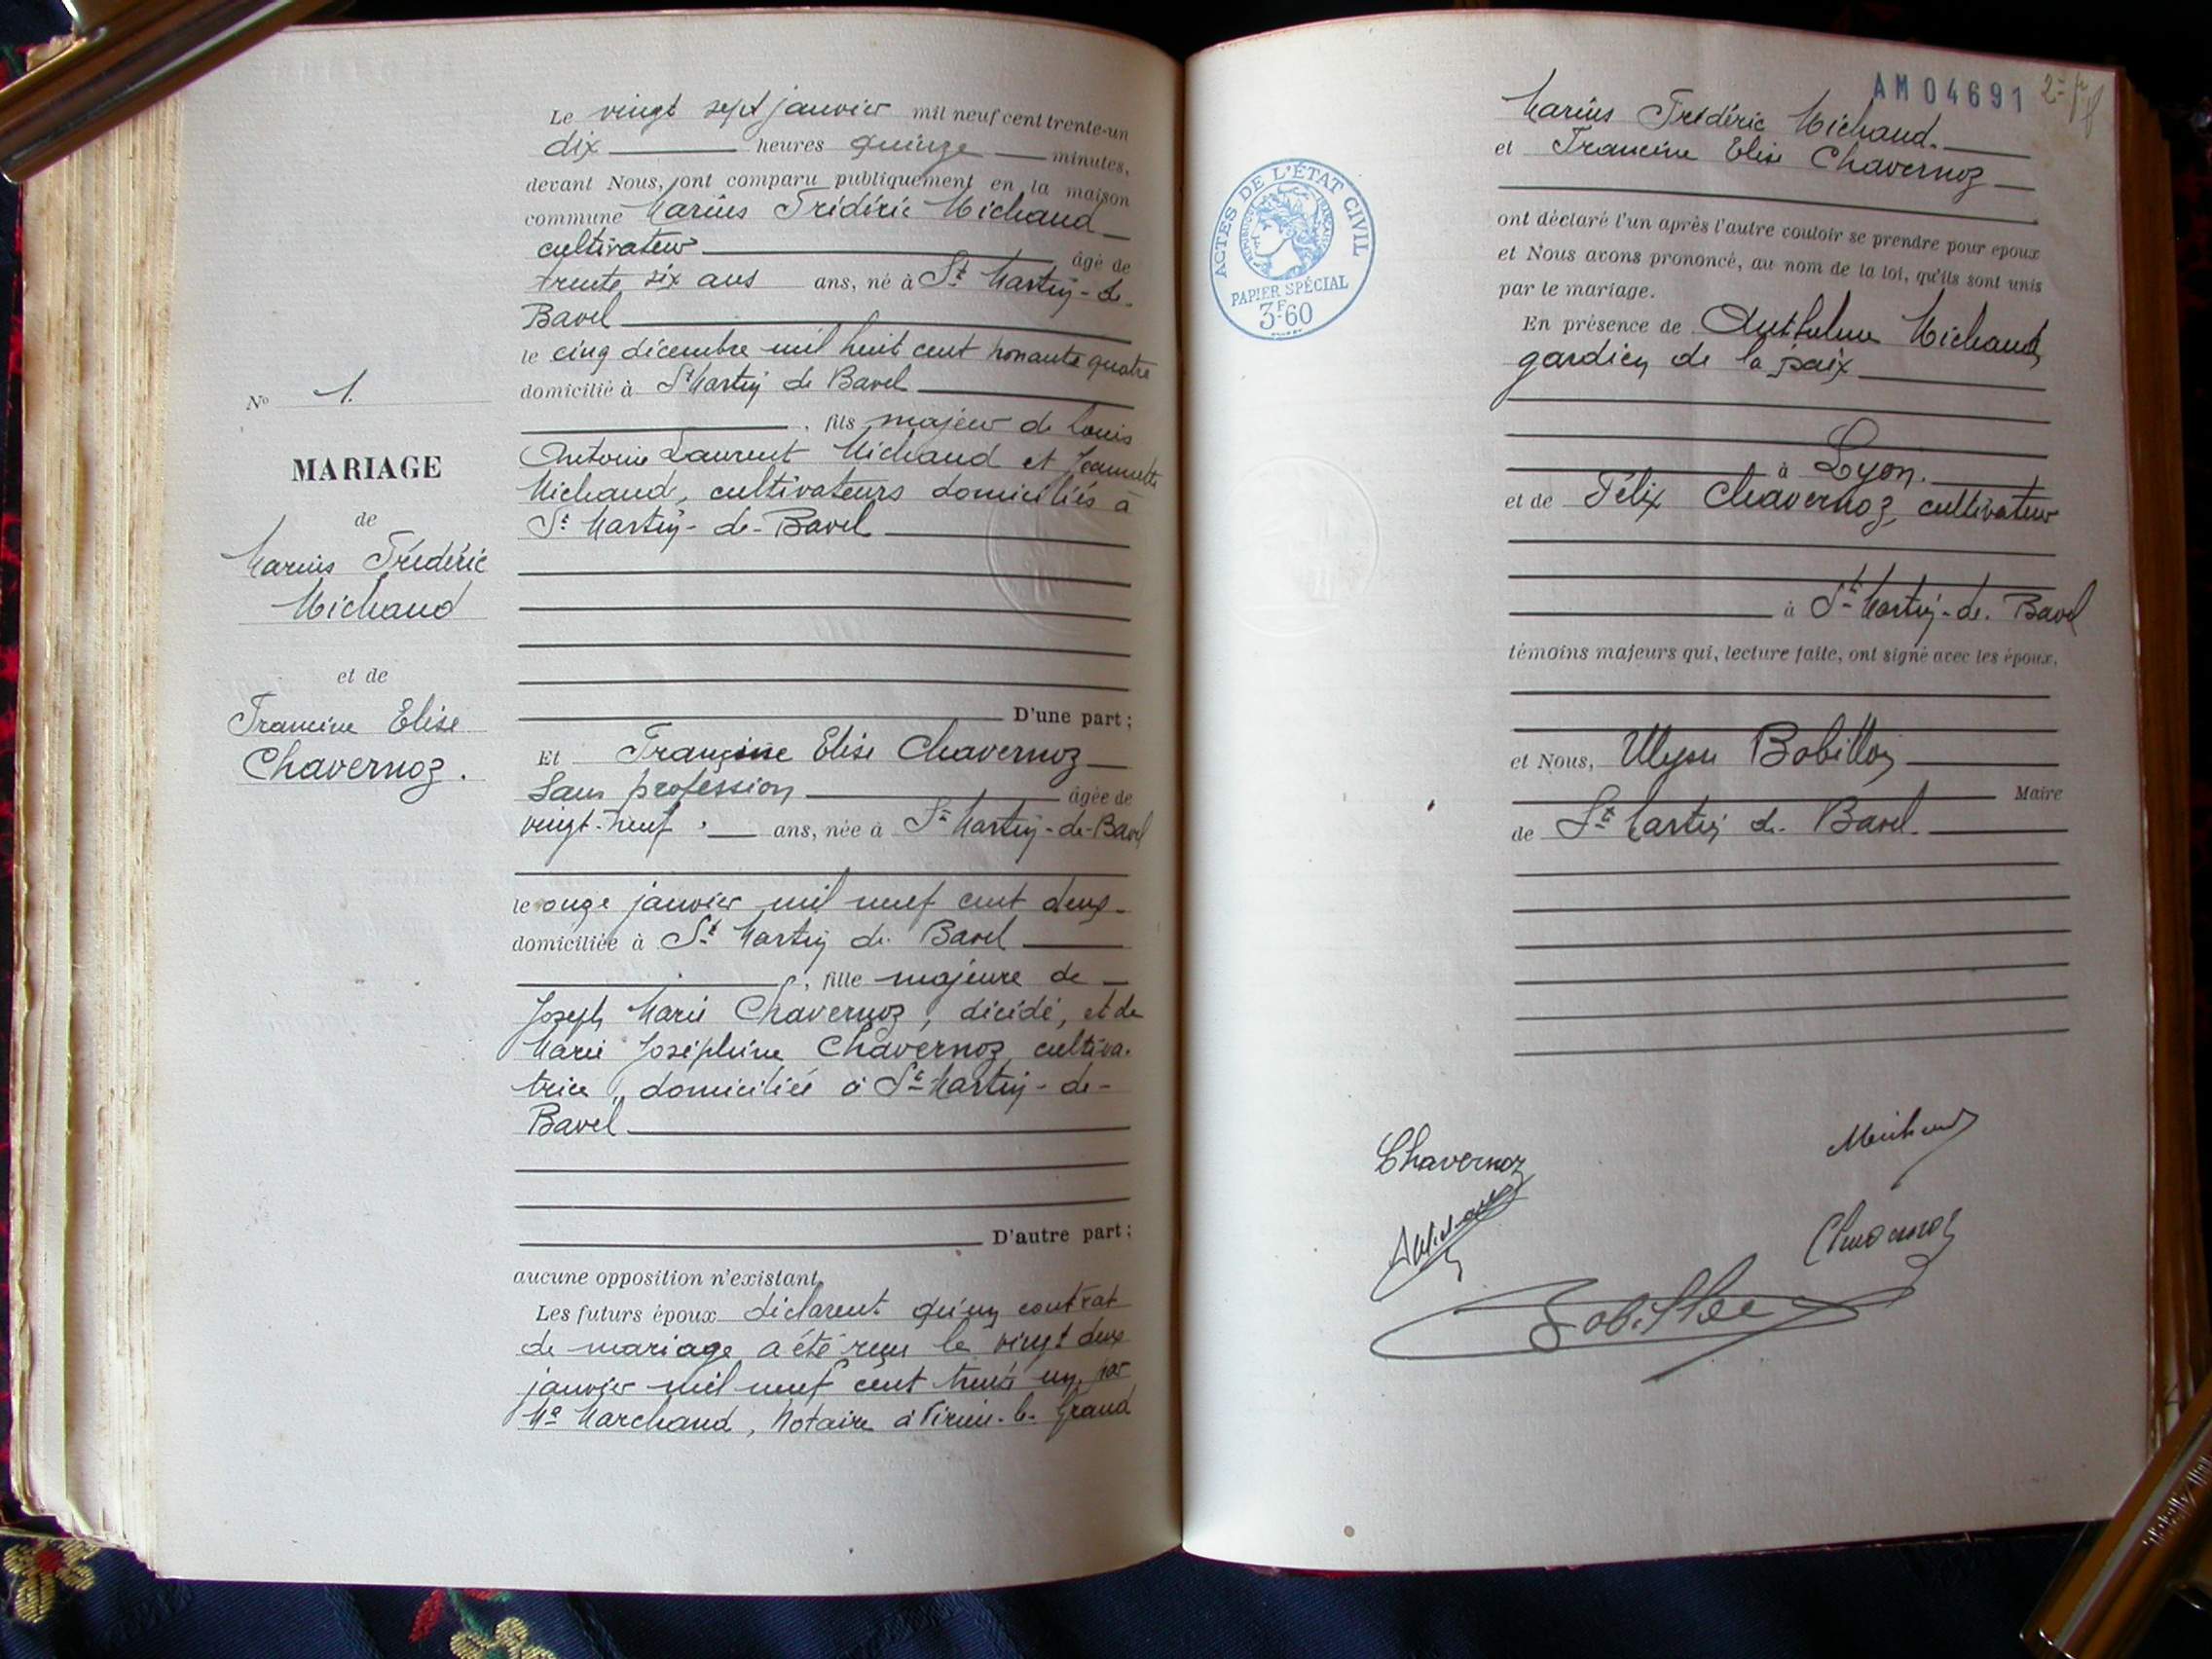 Le vingt sept janvier mil neuf cent trente-un
dix heures quinze minutes,
devant Nous, ont comparu publiquement en la maison
commune Marius Frédéric Michaud
cultivateur âgé de
trente six ans ans, né à St Martin-de-
Bavel
le cinq décembre mil huit cent nonante quatre
domicilié à St Martin de Bavel
, fils majeur de Louis
Antoine Laurent Michaud et Jeannette
Michaud, cultivateurs domiciliés à
St Martin-de-Bavel
D'une part ;
No 1.
MARIAGE
de
Marius Frédéric
Michaud
et de
Francine Elise
Chavernoz.
Et Francine Elise Chavernoz
Sans profession âgée de
vingt-neuf ans, née à St Martin-de-Bavel
le onze janvier mil neuf cent deux
domiciliée à St Martin de Bavel
, fille majeure de
Joseph Marie Chavernoz, décédé, et de
Marie Joséphine Chavernoz, cultiva-
trice, domiciliée à St Martin-de-
Bavel
D'autre part ;
aucune opposition n'existant,
Les futurs époux déclarent qu'un contrat
de mariage a été reçu le vingt deux
janvier mil neuf cent trente un, par
Me Marchand, Notaire à Virieu-le-Grand
AM 04691
Marius Frédéric Michaud.
et Francine Elise Chavernoz
ACTES DE L'ÉTAT CIVIL
RÉPUBLIQUE FRANÇAISE
PAPIER SPÉCIAL
3F60
ont déclaré l'un après l'autre vouloir se prendre pour époux
et Nous avons prononcé, au nom de la loi, qu'ils sont unis
par le mariage.
En présence de Anthelme Michaud,
gardien de la paix
à Lyon.
et de Félix Chavernoz, cultivateur
à St Martin-de-Bavel
témoins majeurs qui, lecture faite, ont signé avec les époux,
et Nous, Ulysse Bobillon
Maire
de St Martin de Bavel.
Chavernoz
Michaud
Chavernoz
Bobillon